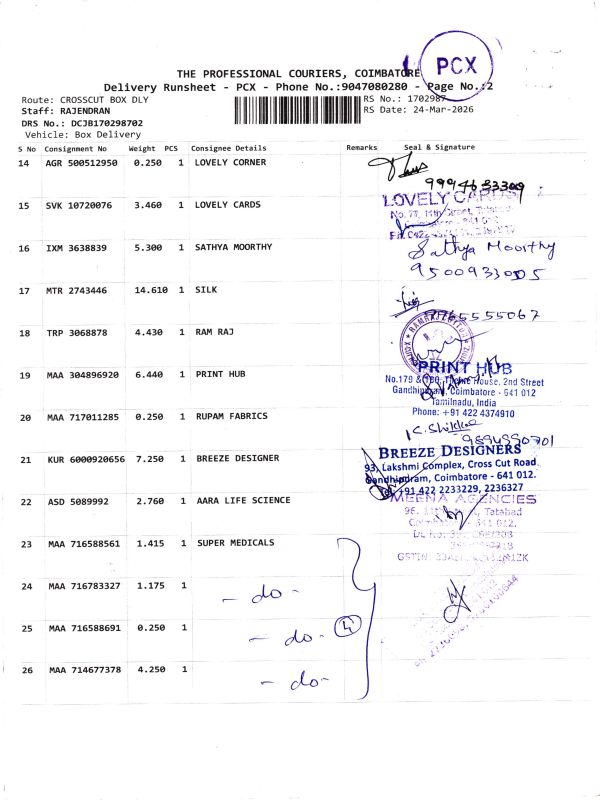 PCX
THE PROFESSIONAL COURIERS, COIMBATORE
Delivery Runsheet - PCX - Phone No.:9047080280 - Page No.:2
Route: CROSSCUT BOX DLY
RS No.: 1702987
Staff: RAJENDRAN
RS Date: 24-Mar-2026
DRS No.: DCJB170298702
Vehicle: Box Delivery
S No Consignment No Weight PCS Consignee Details Remarks Seal & Signature
14 AGR 500512950 0.250 1 LOVELY CORNER
15 SVK 10720076 3.460 1 LOVELY CARDS
LOVELY CARDS
16 IXM 3638839 5.300 1 SATHYA MOORTHY
Sathya Moorthy
9500933005
17 MTR 2743446 14.610 1 SILK
18 TRP 3068878 4.430 1 RAM RAJ
19 MAA 304896920 6.440 1 PRINT HUB
PRINT HUB
House, 2nd Street
Gandhipuram, Coimbatore - 641 012
Tamilnadu, India
Phone: +91 422 4374910
20 MAA 717011285 0.250 1 RUPAM FABRICS
21 KUR 6000920656 7.250 1 BREEZE DESIGNER
BREEZE DESIGNERS
93, Lakshmi Complex, Cross Cut Road
Gandhipuram, Coimbatore - 641 012.
+91 422 2233229, 2236327
22 ASD 5089992 2.760 1 AARA LIFE SCIENCE
MEENA AGENCIES
Tatabad
641 012.
23 MAA 716588561 1.415 1 SUPER MEDICALS
24 MAA 716783327 1.175 1 - do -
25 MAA 716588691 0.250 1 - do - 4
26 MAA 714677378 4.250 1 - do -